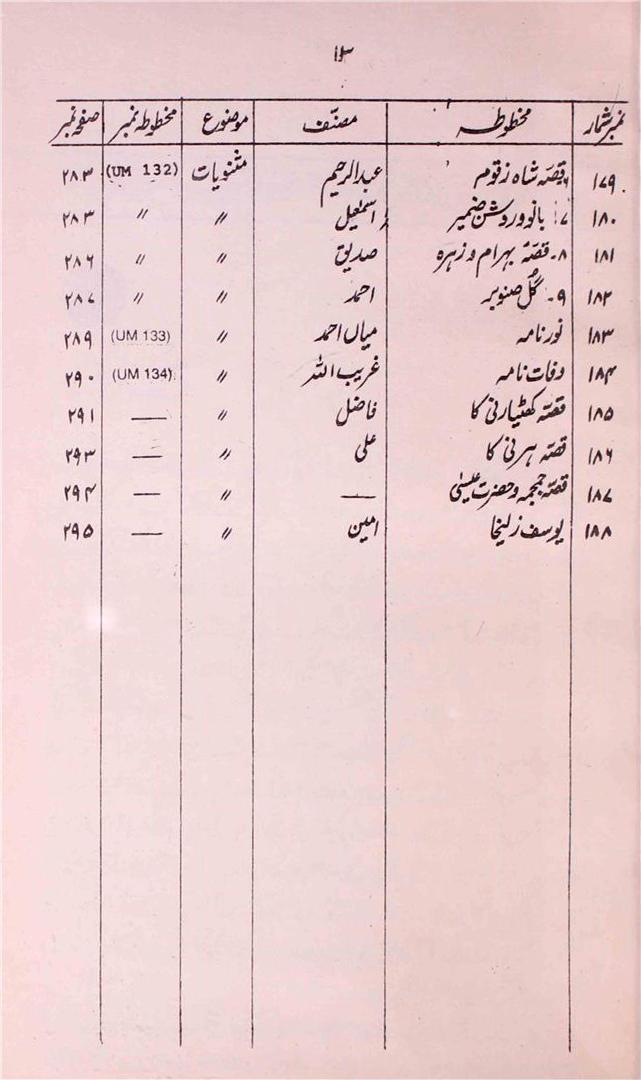 ۱۳
نمبر شمار مخطوطہ مصنّف موضوع مخطوطہ نمبر صفحہ نمبر
۱۷۹ ۶۔ قصّہ شاہ زقوم عبدالرحیم مثنویات (UM 132) ۲۸۳
۱۸۰ ۷۔ بانو و روشن ضمیر اسمٰعیل 〃 〃 ۲۸۳
۱۸۱ ۸۔ قصّہ بہرام و زہرہ صدیق 〃 〃 ۲۸۶
۱۸۲ ۹۔ گُل صنوبر احمد 〃 〃 ۲۸۷
۱۸۳ نور نامہ میاں احمد 〃 (UM 133) ۲۸۹
۱۸۴ وفات نامہ غریب اللہ 〃 (UM 134) ۲۹۰
۱۸۵ قصّہ کھٹیارنی کا فاضل 〃 — ۲۹۱
۱۸۶ قصّہ ہرنی کا علی 〃 — ۲۹۳
۱۸۷ قصّہ جمجمہ و حضرت عیسیٰ — 〃 — ۲۹۴
۱۸۸ یوسف زلیخا امین 〃 — ۲۹۵